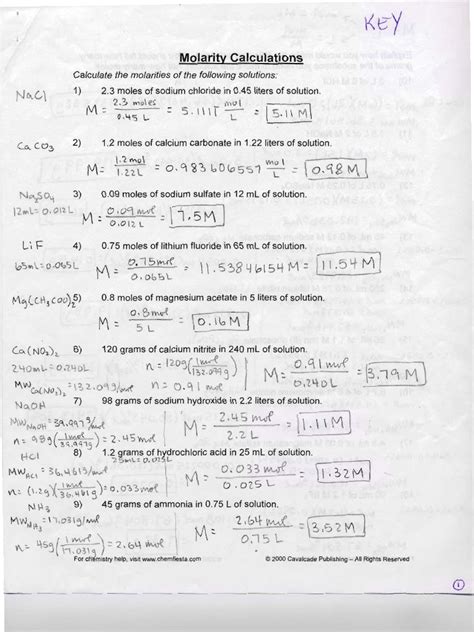 KEY
Molarity Calculations
Calculate the molarities of the following solutions:
NaCl 1) 2.3 moles of sodium chloride in 0.45 liters of solution.
M = 2.3 moles / 0.45 L = 5.111 mol/L = 5.11 M
CaCO3 2) 1.2 moles of calcium carbonate in 1.22 liters of solution.
M = 1.2 mol / 1.22 L = 0.983606557 mol/L = 0.98 M
Na2SO4 3) 0.09 moles of sodium sulfate in 12 mL of solution.
12mL = 0.012L M = 0.09 mol / 0.012 L = 7.5 M
LiF 4) 0.75 moles of lithium fluoride in 65 mL of solution.
65mL = 0.065L M = 0.75 mol / 0.065L = 11.53846154 M = 11.54 M
Mg(CH3COO)2 5) 0.8 moles of magnesium acetate in 5 liters of solution.
M = 0.8 mol / 5 L = 0.16 M
Ca(NO2)2 6) 120 grams of calcium nitrite in 240 mL of solution.
240mL = 0.240L n = 120g (1 mol / 132.099g) M = 0.91 mol / 0.240L = 3.79 M
MW Ca(NO2)2 = 132.099 g/mol n = 0.91 mol
NaOH 7) 98 grams of sodium hydroxide in 2.2 liters of solution.
MW NaOH = 39.997 g/mol
n = 98g (1 mol / 39.997g) = 2.45 mol M = 2.45 mol / 2.2 L = 1.11 M
HCl 8) 1.2 grams of hydrochloric acid in 25 mL of solution.
25mL = 0.025L
MW HCl = 36.461 g/mol
n = (1.2g)(1 mol / 36.461g) = 0.033 mol M = 0.033 mol / 0.025 L = 1.32 M
NH3 9) 45 grams of ammonia in 0.75 L of solution.
MW NH3 = 17.031 g/mol
n = 45g (1 mol / 17.031g) = 2.64 mol M = 2.64 mol / 0.75 L = 3.52 M
For chemistry help, visit www.chemfiesta.com © 2000 Cavalcade Publishing – All Rights Reserved
1